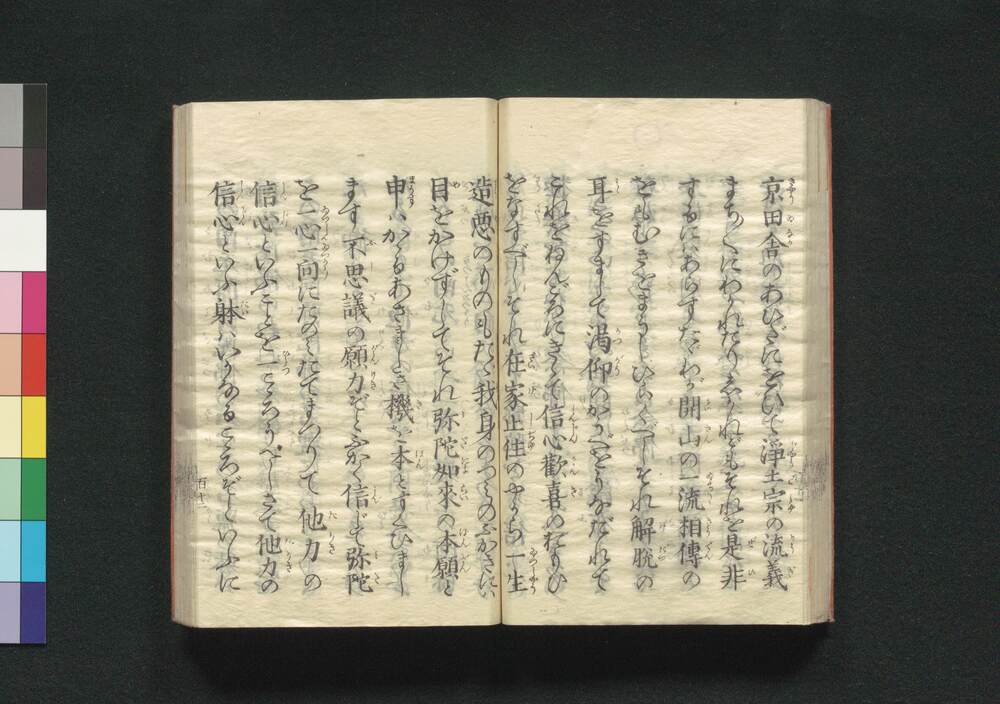 京田舎のあひだにをひて浄土宗の流義
まち〳〵にわかれたりしかれどもそれを是非
するにはあらずたゞわが開山の一流相傳の
をもむきをまうしひらくべしそれ解脱の
耳をすまして渇仰のかうべをうなだれて
これをねんごろにきゝて信心歓喜のおもひ
をなすべしそれ在家止住のやから一生
造悪のものもたゞ我身のつみのふかきには
目をかけずしてそれ弥陀如來の本願と
申はかゝるあさましき機を本とすくひまし
ます不思議の願力ぞとふかく信じて弥陀
を一心一向にたのみたてまつりて他力の
信心といふことを一こゝろうべしさて他力の
信心といふ躰はいかなるこゝろぞといふに
百十